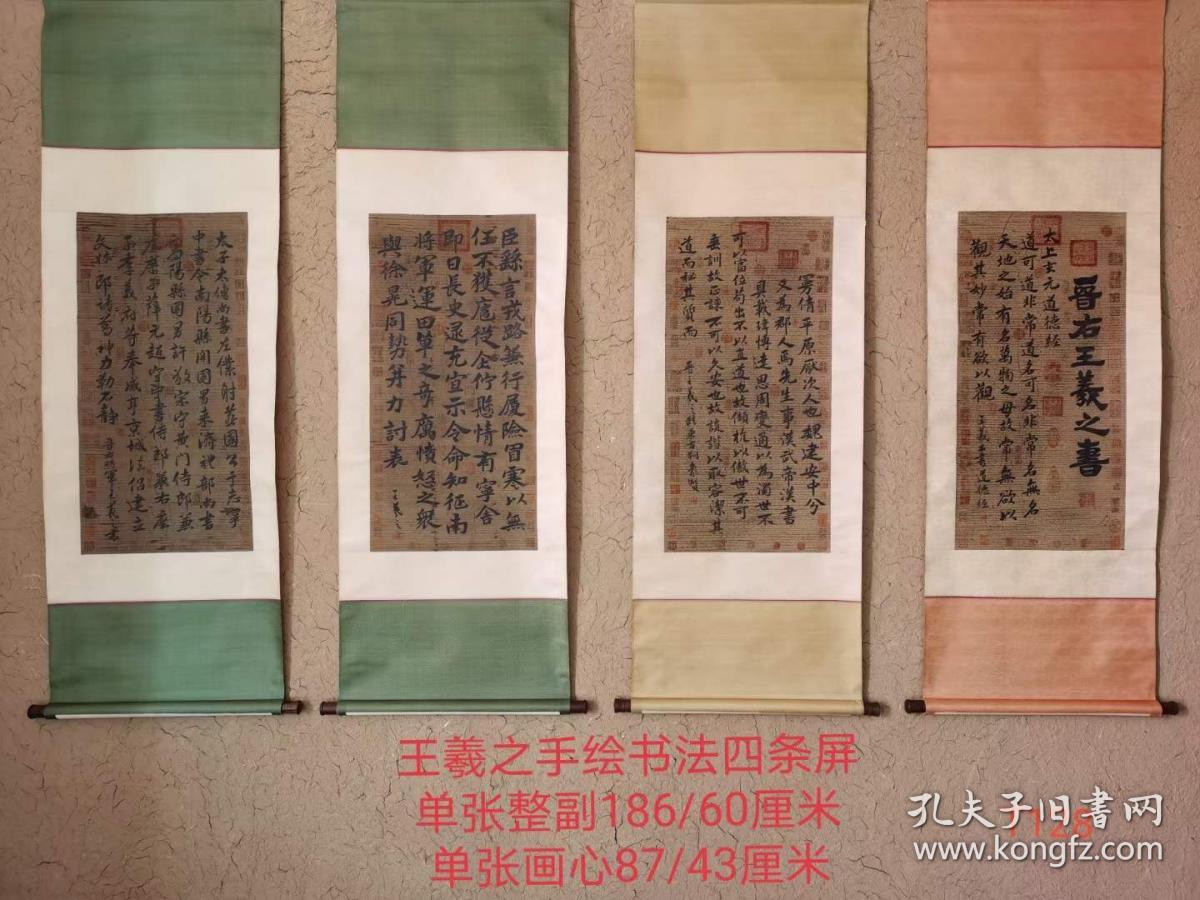 晉右王羲之書
太上玄元道德經
道可道非常道名可名非常名無名
天地之始有名萬物之母故常無欲以
觀其妙常有欲以觀
王羲之書道德經
曼倩平原厭次人也魏建安中分
又為郡人焉先生事漢武帝漢書
具載瑋博達思周變通以為濁世不
可以富位苟出不以直道也故傾抗以傲世不可
垂訓故正諫不可以久安也故詼諧以取容潔其
道而穢其質而
臣繇言戎路兼行履險冒寒以無
任不獲扈從企佇懸情有寧舍
即日長史逯充宣示令命知征南
將軍運田單之奇厲憤怒之眾
與徐晃同勢并力討表
王羲之
太子太傅尚書左僕射燕國公于志寧
中書令南陽縣開國男来濟禮部尚書
高陽縣開國男許敬宗守黃門侍郎兼
左庶子薛元超守中書侍郎兼右庶
子李義府等奉咸亨京城法侶建立
文林郎諸葛神力勒石静
王羲之手绘书法四条屏
单张整副186/60厘米
单张画心87/43厘米
1128
孔夫子旧书网
www.kongfz.com